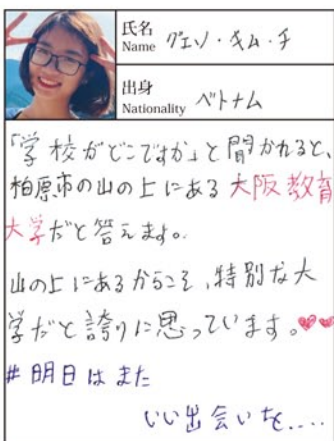 氏名
Name グエン・キム・チ
出身
Nationality ベトナム
「学校がどこですか」と聞かれると、
柏原市の山の上にある大阪教育
大学だと答えます。
山の上にあるからこそ、特別な大
学だと誇りに思っています。
#明日はまた
いい出会いを....